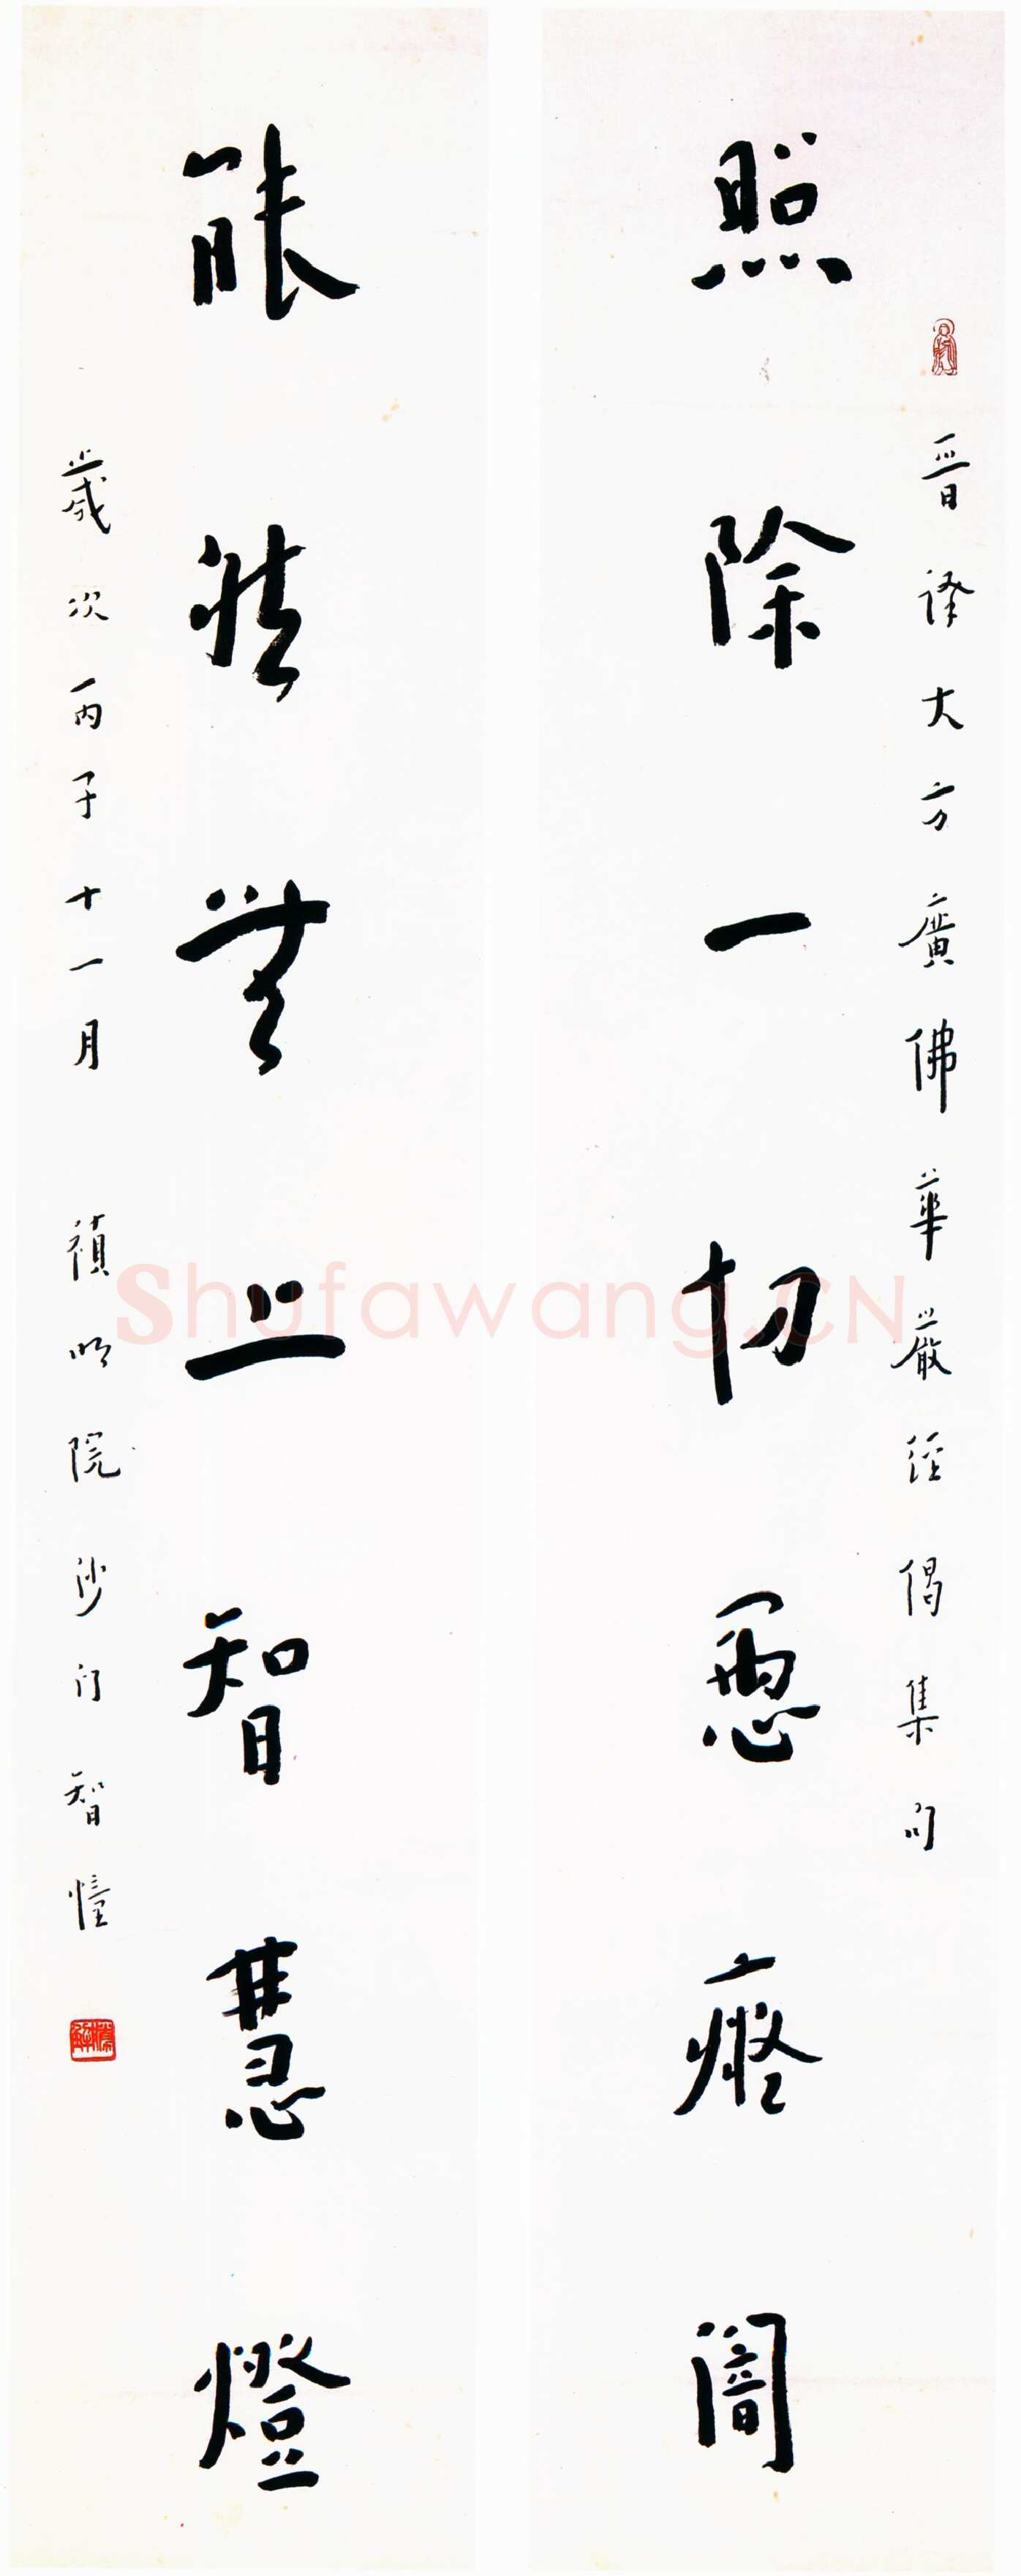 晉譯大方廣佛華嚴經偈集句
照除一切惡癡闇
能無上智慧燈
歲次丙子十一月 禎明院沙門智幢
Shufawang.CN